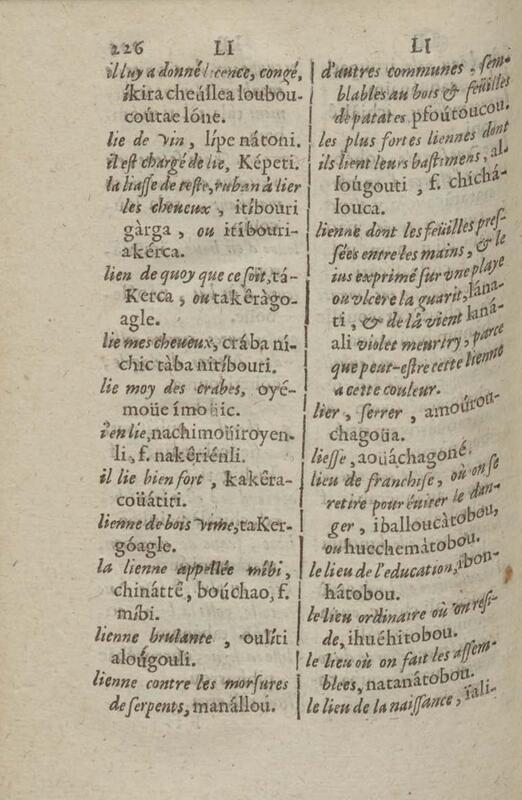 226 LI
il luy a donné licence, congé,
íkira cheúllea loubou-
coútae lóne.
lie de vin, lípe nátoni.
il est chargé de lie, Képeti.
la liasse de teste, ruban à lier
les cheueux, itíbouri
gàrga, ou itíbouri-
akérca.
lien de quoy que ce soit, tá-
Kerca, ou takêràgo-
agle.
lie mes cheueux, crába ní-
chic tàba nitíbouri.
lie moy des crabes, oyé-
moüe ímoüic.
i'en lie, nachimoüiroyen-
li, f. nakêriénli.
il lie bien fort, kakêra-
coüátiti.
lienne de bois vime, taKer-
góagle.
la lienne appellée míbi,
chináttê, boúchao, f.
míbi.
lienne brulante, oulíti
aloúgouli.
lienne contre les morsures
de serpents, manállou.
LI
d'autres communes, sem-
blables au bois & feüilles
de patates, pfoútoucou.
les plus fortes liennes dont
ils lient leurs bastimens, al-
loúgouti, f. chichá-
louca.
lienne dont les feüilles pres-
sées entre les mains, & le
ius exprimé sur vne playe
ou vlcère la guarit, lána-
ti, & de là vient kaná-
ali violet meurtry, parce
que peut-estre cette lienne
a cette couleur.
lier, serrer, amoúrou-
chagoüa.
liesse, aoüáchagoné.
lieu de franchise, où on se
retire pour éuiter le dan-
ger, iballoucàtobou,
ou huecchemàtobou.
le lieu de l'education, ibon-
hátobou.
le lieu ordinaire où on resi-
de, ihuéhitobou.
le lieu où on fait les assem-
blees, natanátobou.
le lieu de la naissance, ïali-